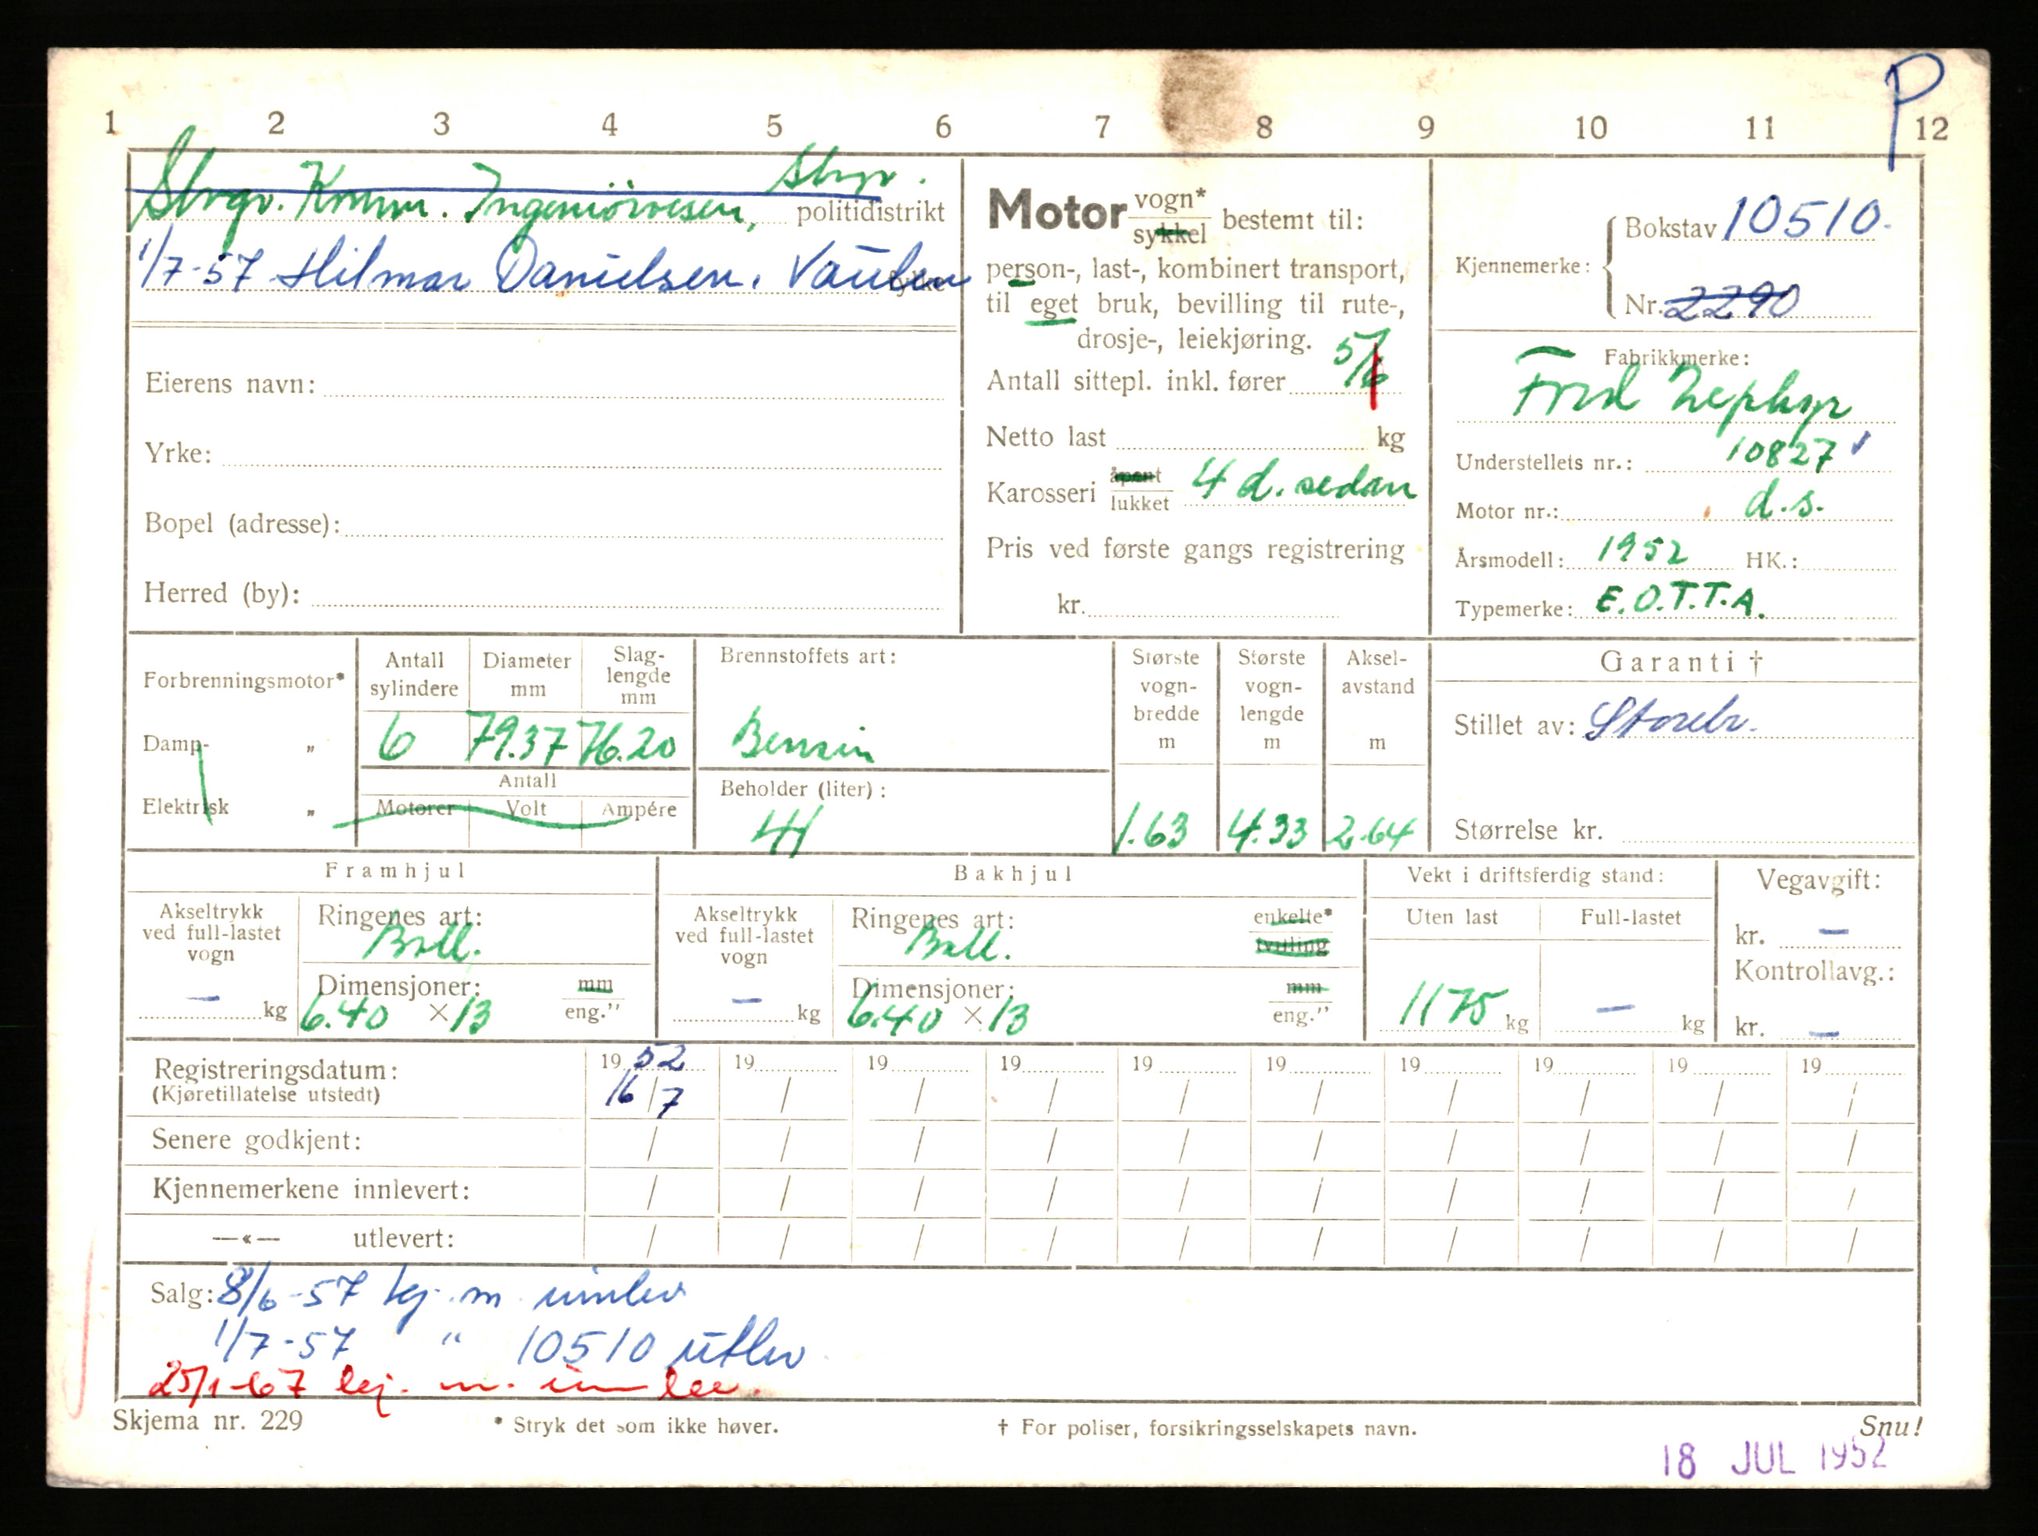 P
1 2 3 4 5 6 7 8 9 10 11 12
Stvgr. Komm. Ingeniörvesen, Stvgr. politidistrikt
1/7-57 Hilmar Danielsen, Vaulen fylke
Eierens navn:
Yrke:
Bopel (adresse):
Herred (by):
Motor vogn* sykkel bestemt til:
person-, last-, kombinert transport,
til eget bruk, bevilling til rute-,
drosje-, leiekjøring.
Antall sittepl. inkl. fører 5/6
Netto last kg
Karosseri åpent lukket 4 d. sedan
Pris ved første gangs registrering
kr.
Kjennemerke: Bokstav 10510.
Nr. 2290
Fabrikkmerke:
Ford Zephyr
Understellets nr.: 10827
Motor nr.: d.s.
Årsmodell: 1952 HK.:
Typemerke: E.O.T.T.A.
Forbrenningsmotor*
Damp- „
Elektrisk „
Antall sylindere 6
Diameter mm 79.37
Slaglengde mm 76.20
Antall
Motorer Volt Ampére
Brennstoffets art:
Bensin
Beholder (liter):
41
Største vognbredde m 1.63
Største vognlengde m 4.33
Akselavstand m 2.64
Garanti †
Stillet av: Storebr.
Størrelse kr.
Framhjul
Akseltrykk ved full-lastet vogn – kg
Ringenes art: Ball.
Dimensjoner: mm eng."
6.40 × 13
Bakhjul
Akseltrykk ved full-lastet vogn – kg
Ringenes art: Ball. enkelte* tvilling
Dimensjoner: mm eng."
6.40 × 13
Vekt i driftsferdig stand:
Uten last 1175 kg
Full-lastet – kg
Vegavgift:
kr. –
Kontrollavg.:
kr. –
Registreringsdatum: 19 52 19 19 19 19 19 19 19 19 19
(Kjøretillatelse utstedt) 16/7 / / / / / / / / /
Senere godkjent: / / / / / / / / / /
Kjennemerkene innlevert: / / / / / / / / / /
—«— utlevert: / / / / / / / / / /
Salg: 8/6-57 kj. m innlev
1/7-57 " 10510 utlev
25/1-67 kj. m. innlev.
Skjema nr. 229 * Stryk det som ikke høver. † For poliser, forsikringsselskapets navn. Snu!
18 JUL 1952